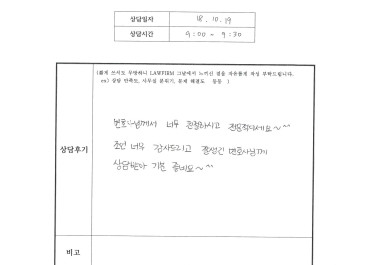 상담일자 18. 10. 19
상담시간 9:00 - 9:30
(짧게 쓰셔도 무방하니 LAWFIRM 그날에서 느끼신 점을 자유롭게 작성 부탁드립니다.
ex) 상담 만족도, 사무실 분위기, 문제 해결도 등등 )
상담후기
너무 친절하시고 전문적이세요~^^
조언 너무 감사드리고 변호사님께
상담받아 기분 좋네요~^^
비고